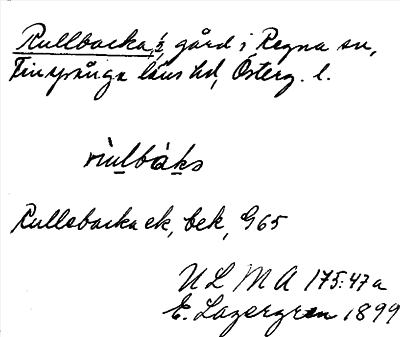 Rullbacka, ½ gård i Regna sn,
Finspånga läns hd, Österg. l.
rulbàks
Rullebacka ek, bek, G65
ULMA 175:47a
E. Lagergren 1899